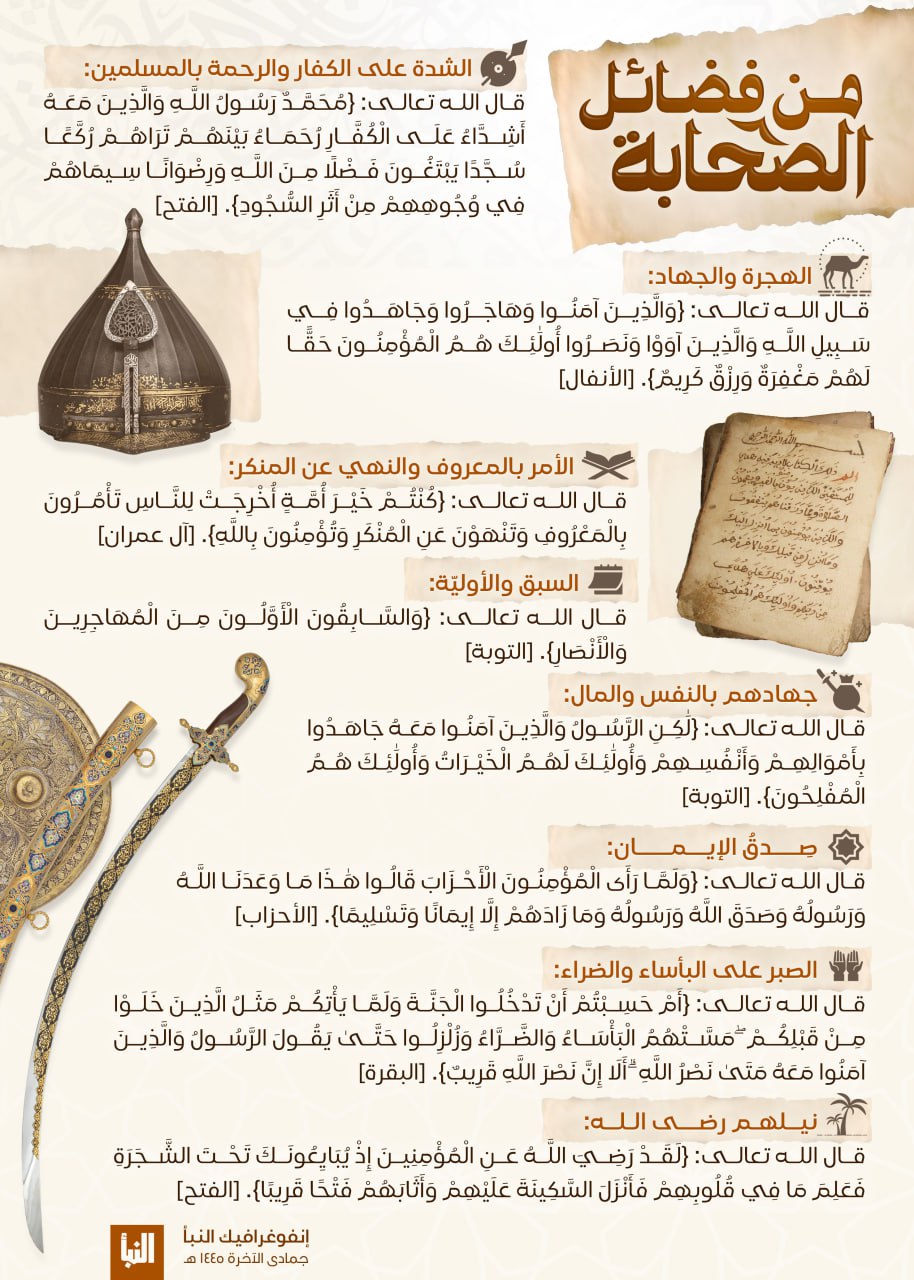 من فضائل
الصحابة
الشدة على الكفار والرحمة بالمسلمين:
قال الله تعالى: {مُحَمَّدٌ رَسُولُ اللَّهِ وَالَّذِينَ مَعَهُ
أَشِدَّاءُ عَلَى الْكُفَّارِ رُحَمَاءُ بَيْنَهُمْ تَرَاهُمْ رُكَّعًا
سُجَّدًا يَبْتَغُونَ فَضْلًا مِنَ اللَّهِ وَرِضْوَانًا سِيمَاهُمْ
فِي وُجُوهِهِمْ مِنْ أَثَرِ السُّجُودِ}. [الفتح]
الهجرة والجهاد:
قال الله تعالى: {وَالَّذِينَ آمَنُوا وَهَاجَرُوا وَجَاهَدُوا فِي
سَبِيلِ اللَّهِ وَالَّذِينَ آوَوْا وَنَصَرُوا أُولَٰئِكَ هُمُ الْمُؤْمِنُونَ حَقًّا
لَهُمْ مَغْفِرَةٌ وَرِزْقٌ كَرِيمٌ}. [الأنفال]
الأمر بالمعروف والنهي عن المنكر:
قال الله تعالى: {كُنْتُمْ خَيْرَ أُمَّةٍ أُخْرِجَتْ لِلنَّاسِ تَأْمُرُونَ
بِالْمَعْرُوفِ وَتَنْهَوْنَ عَنِ الْمُنْكَرِ وَتُؤْمِنُونَ بِاللَّهِ}. [آل عمران]
السبق والأوليّة:
قال الله تعالى: {وَالسَّابِقُونَ الْأَوَّلُونَ مِنَ الْمُهَاجِرِينَ
وَالْأَنْصَارِ}. [التوبة]
جهادهم بالنفس والمال:
قال الله تعالى: {لَٰكِنِ الرَّسُولُ وَالَّذِينَ آمَنُوا مَعَهُ جَاهَدُوا
بِأَمْوَالِهِمْ وَأَنْفُسِهِمْ وَأُولَٰئِكَ لَهُمُ الْخَيْرَاتُ وَأُولَٰئِكَ هُمُ
الْمُفْلِحُونَ}. [التوبة]
صِدقُ الإيمان:
قال الله تعالى: {وَلَمَّا رَأَى الْمُؤْمِنُونَ الْأَحْزَابَ قَالُوا هَٰذَا مَا وَعَدَنَا اللَّهُ
وَرَسُولُهُ وَصَدَقَ اللَّهُ وَرَسُولُهُ وَمَا زَادَهُمْ إِلَّا إِيمَانًا وَتَسْلِيمًا}. [الأحزاب]
الصبر على البأساء والضراء:
قال الله تعالى: {أَمْ حَسِبْتُمْ أَنْ تَدْخُلُوا الْجَنَّةَ وَلَمَّا يَأْتِكُمْ مَثَلُ الَّذِينَ خَلَوْا
مِنْ قَبْلِكُمْ ۖ مَسَّتْهُمُ الْبَأْسَاءُ وَالضَّرَّاءُ وَزُلْزِلُوا حَتَّىٰ يَقُولَ الرَّسُولُ وَالَّذِينَ
آمَنُوا مَعَهُ مَتَىٰ نَصْرُ اللَّهِ ۗ أَلَا إِنَّ نَصْرَ اللَّهِ قَرِيبٌ}. [البقرة]
نيلهم رضى الله:
قال الله تعالى: {لَقَدْ رَضِيَ اللَّهُ عَنِ الْمُؤْمِنِينَ إِذْ يُبَايِعُونَكَ تَحْتَ الشَّجَرَةِ
فَعَلِمَ مَا فِي قُلُوبِهِمْ فَأَنْزَلَ السَّكِينَةَ عَلَيْهِمْ وَأَثَابَهُمْ فَتْحًا قَرِيبًا}. [الفتح]
إنفوغرافيك النبأ
جمادى الآخرة ١٤٤٥ هـ
النبأ